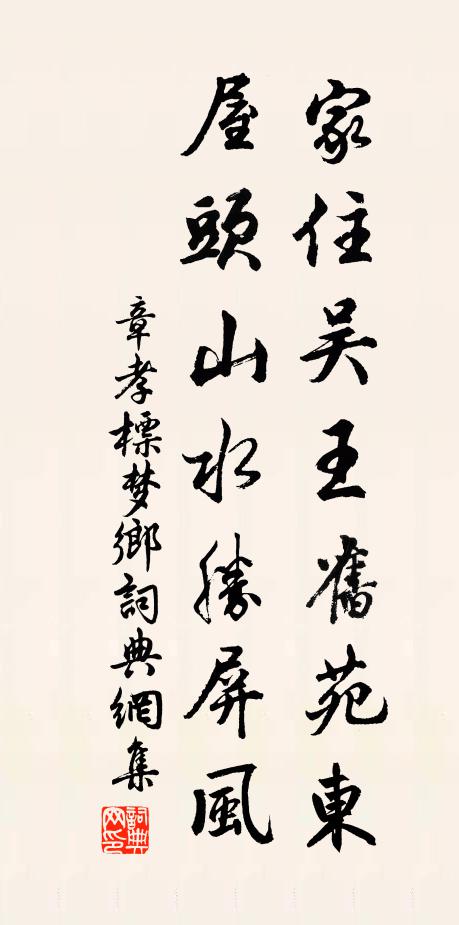 家住吴王舊苑東
屋頭山水勝屏風
章孝標梦鄉詞典網集
詞典
网印